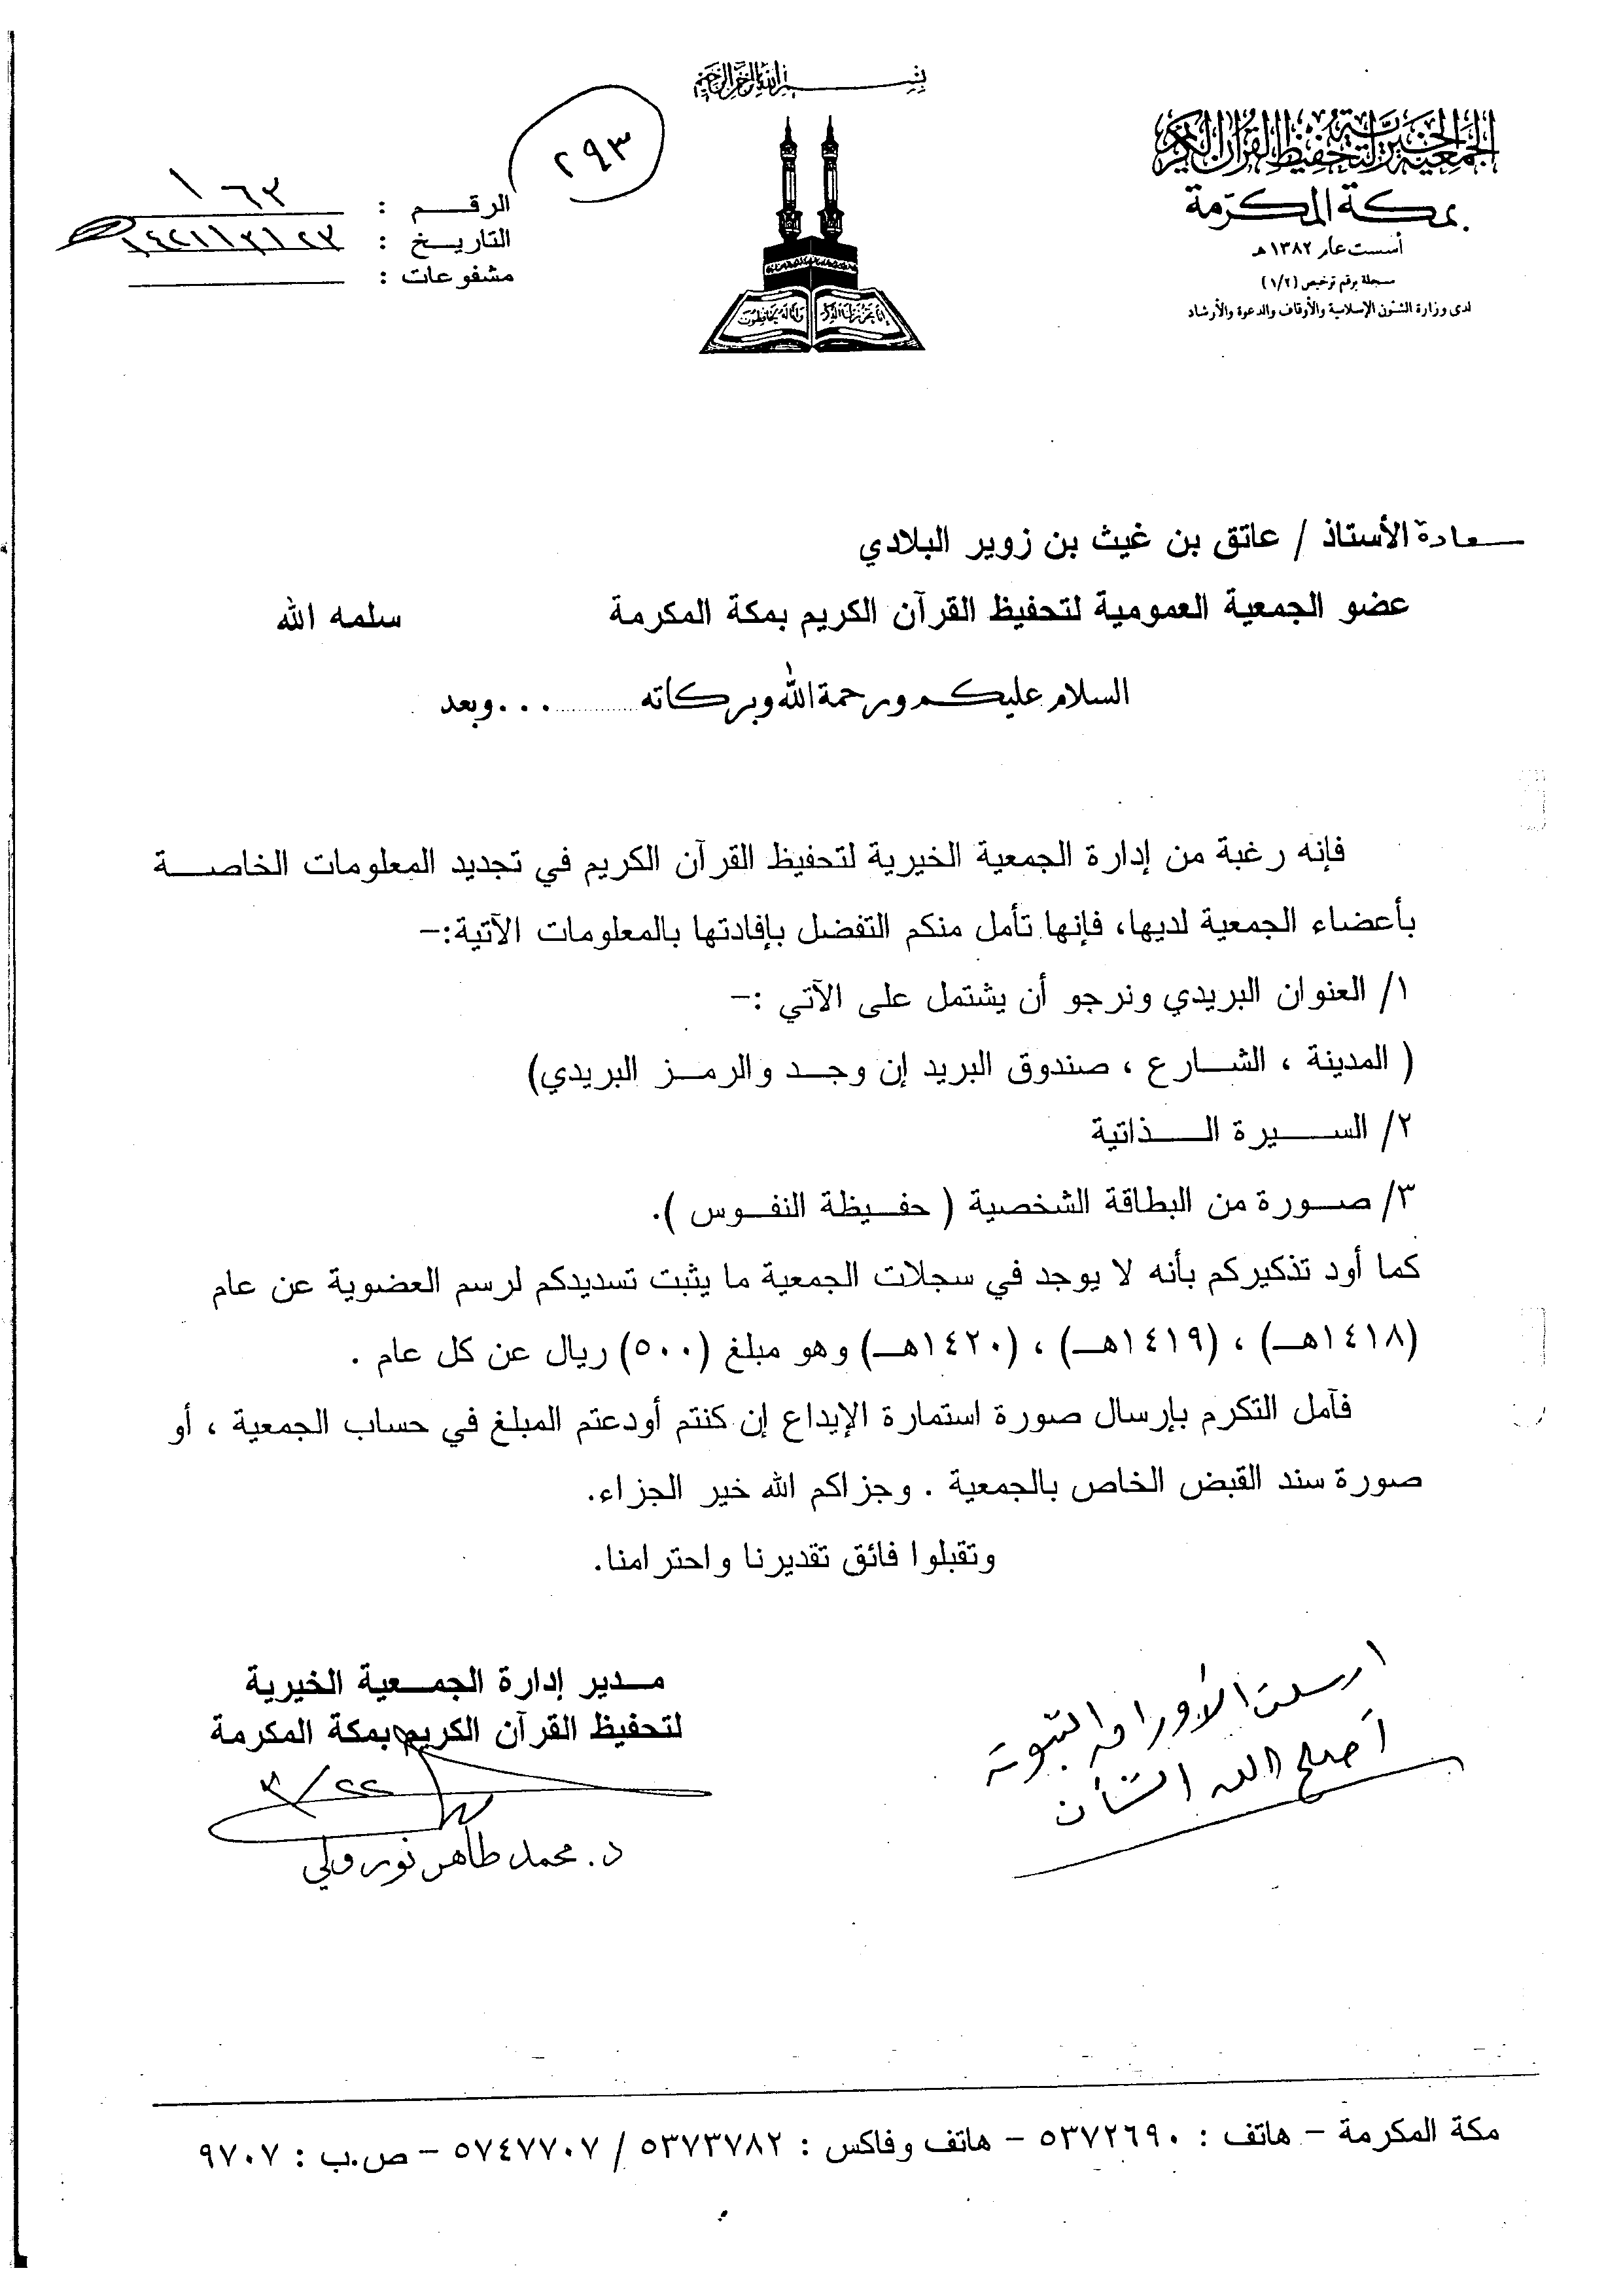 بسم الله الرحمن الرحيم
الجمعية الخيرية لتحفيظ القرآن الكريم
بمكة المكرمة
أسست عام ١٣٨٢هـ
مسجلة برقم ترخيص (١/٢)
لدى وزارة الشئون الإسلامية والأوقاف والدعوة والأرشاد
إنا نحن نزلنا الذكر وإنا له لحافظون
٢٩٣
الرقـــم : ١٦٣
التاريـــخ : ١٤٢١/٣/٢٣
مشفوعات :
سعادة الأستاذ / عاتق بن غيث بن زوير البلادي
عضو الجمعية العمومية لتحفيظ القرآن الكريم بمكة المكرمة سلمه الله
السلام عليكم ورحمة الله وبركاته ............... وبعد
فإنه رغبة من إدارة الجمعية الخيرية لتحفيظ القرآن الكريم في تجديد المعلومات الخاصـــة
بأعضاء الجمعية لديها، فإنها تأمل منكم التفضل بإفادتها بالمعلومات الآتية:-
١/ العنوان البريدي ونرجو أن يشتمل على الآتي :-
( المدينة ، الشـــارع ، صندوق البريد إن وجـــد والرمـــز البريدي)
٢/ الســـيرة الـــذاتية
٣/ صـــورة من البطاقة الشخصية ( حفـــيظة النفـــوس ).
كما أود تذكيركم بأنه لا يوجد في سجلات الجمعية ما يثبت تسديدكم لرسم العضوية عن عام
(١٤١٨هـ) ، (١٤١٩هـ) ، (١٤٢٠هـ) وهو مبلغ (٥٠٠) ريال عن كل عام .
فآمل التكرم بإرسال صورة استمارة الإيداع إن كنتم أودعتم المبلغ في حساب الجمعية ، أو
صورة سند القبض الخاص بالجمعية . وجزاكم الله خير الجزاء.
وتقبلوا فائق تقديرنا واحترامنا.
مـــدير إدارة الجمـــعية الخيرية
لتحفيظ القرآن الكريم بمكة المكرمة
٣/٢٢
د. محمد طاهر نور ولي
ارسلت الأوراق
أصلح الله الشأن
مكة المكرمة - هاتف : ٥٣٧٢٦٩٠ - هاتف وفاكس : ٥٣٧٣٧٨٢ / ٥٧٤٧٧٠٧ - ص.ب : ٩٧٠٧